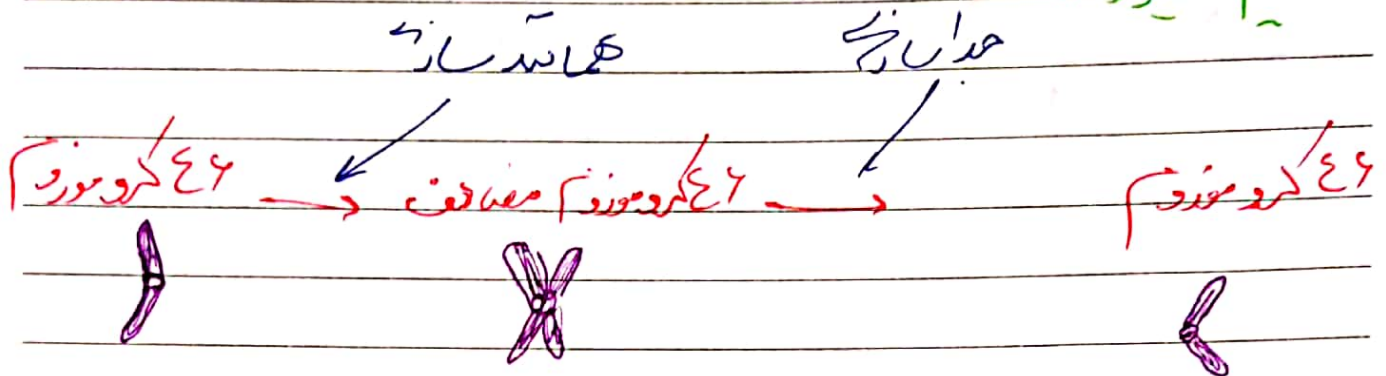 همانندسازی جداسازی
۴۶ کروموزوم → ۴۶ کروموزوم مضاعف → ۴۶ کروموزوم